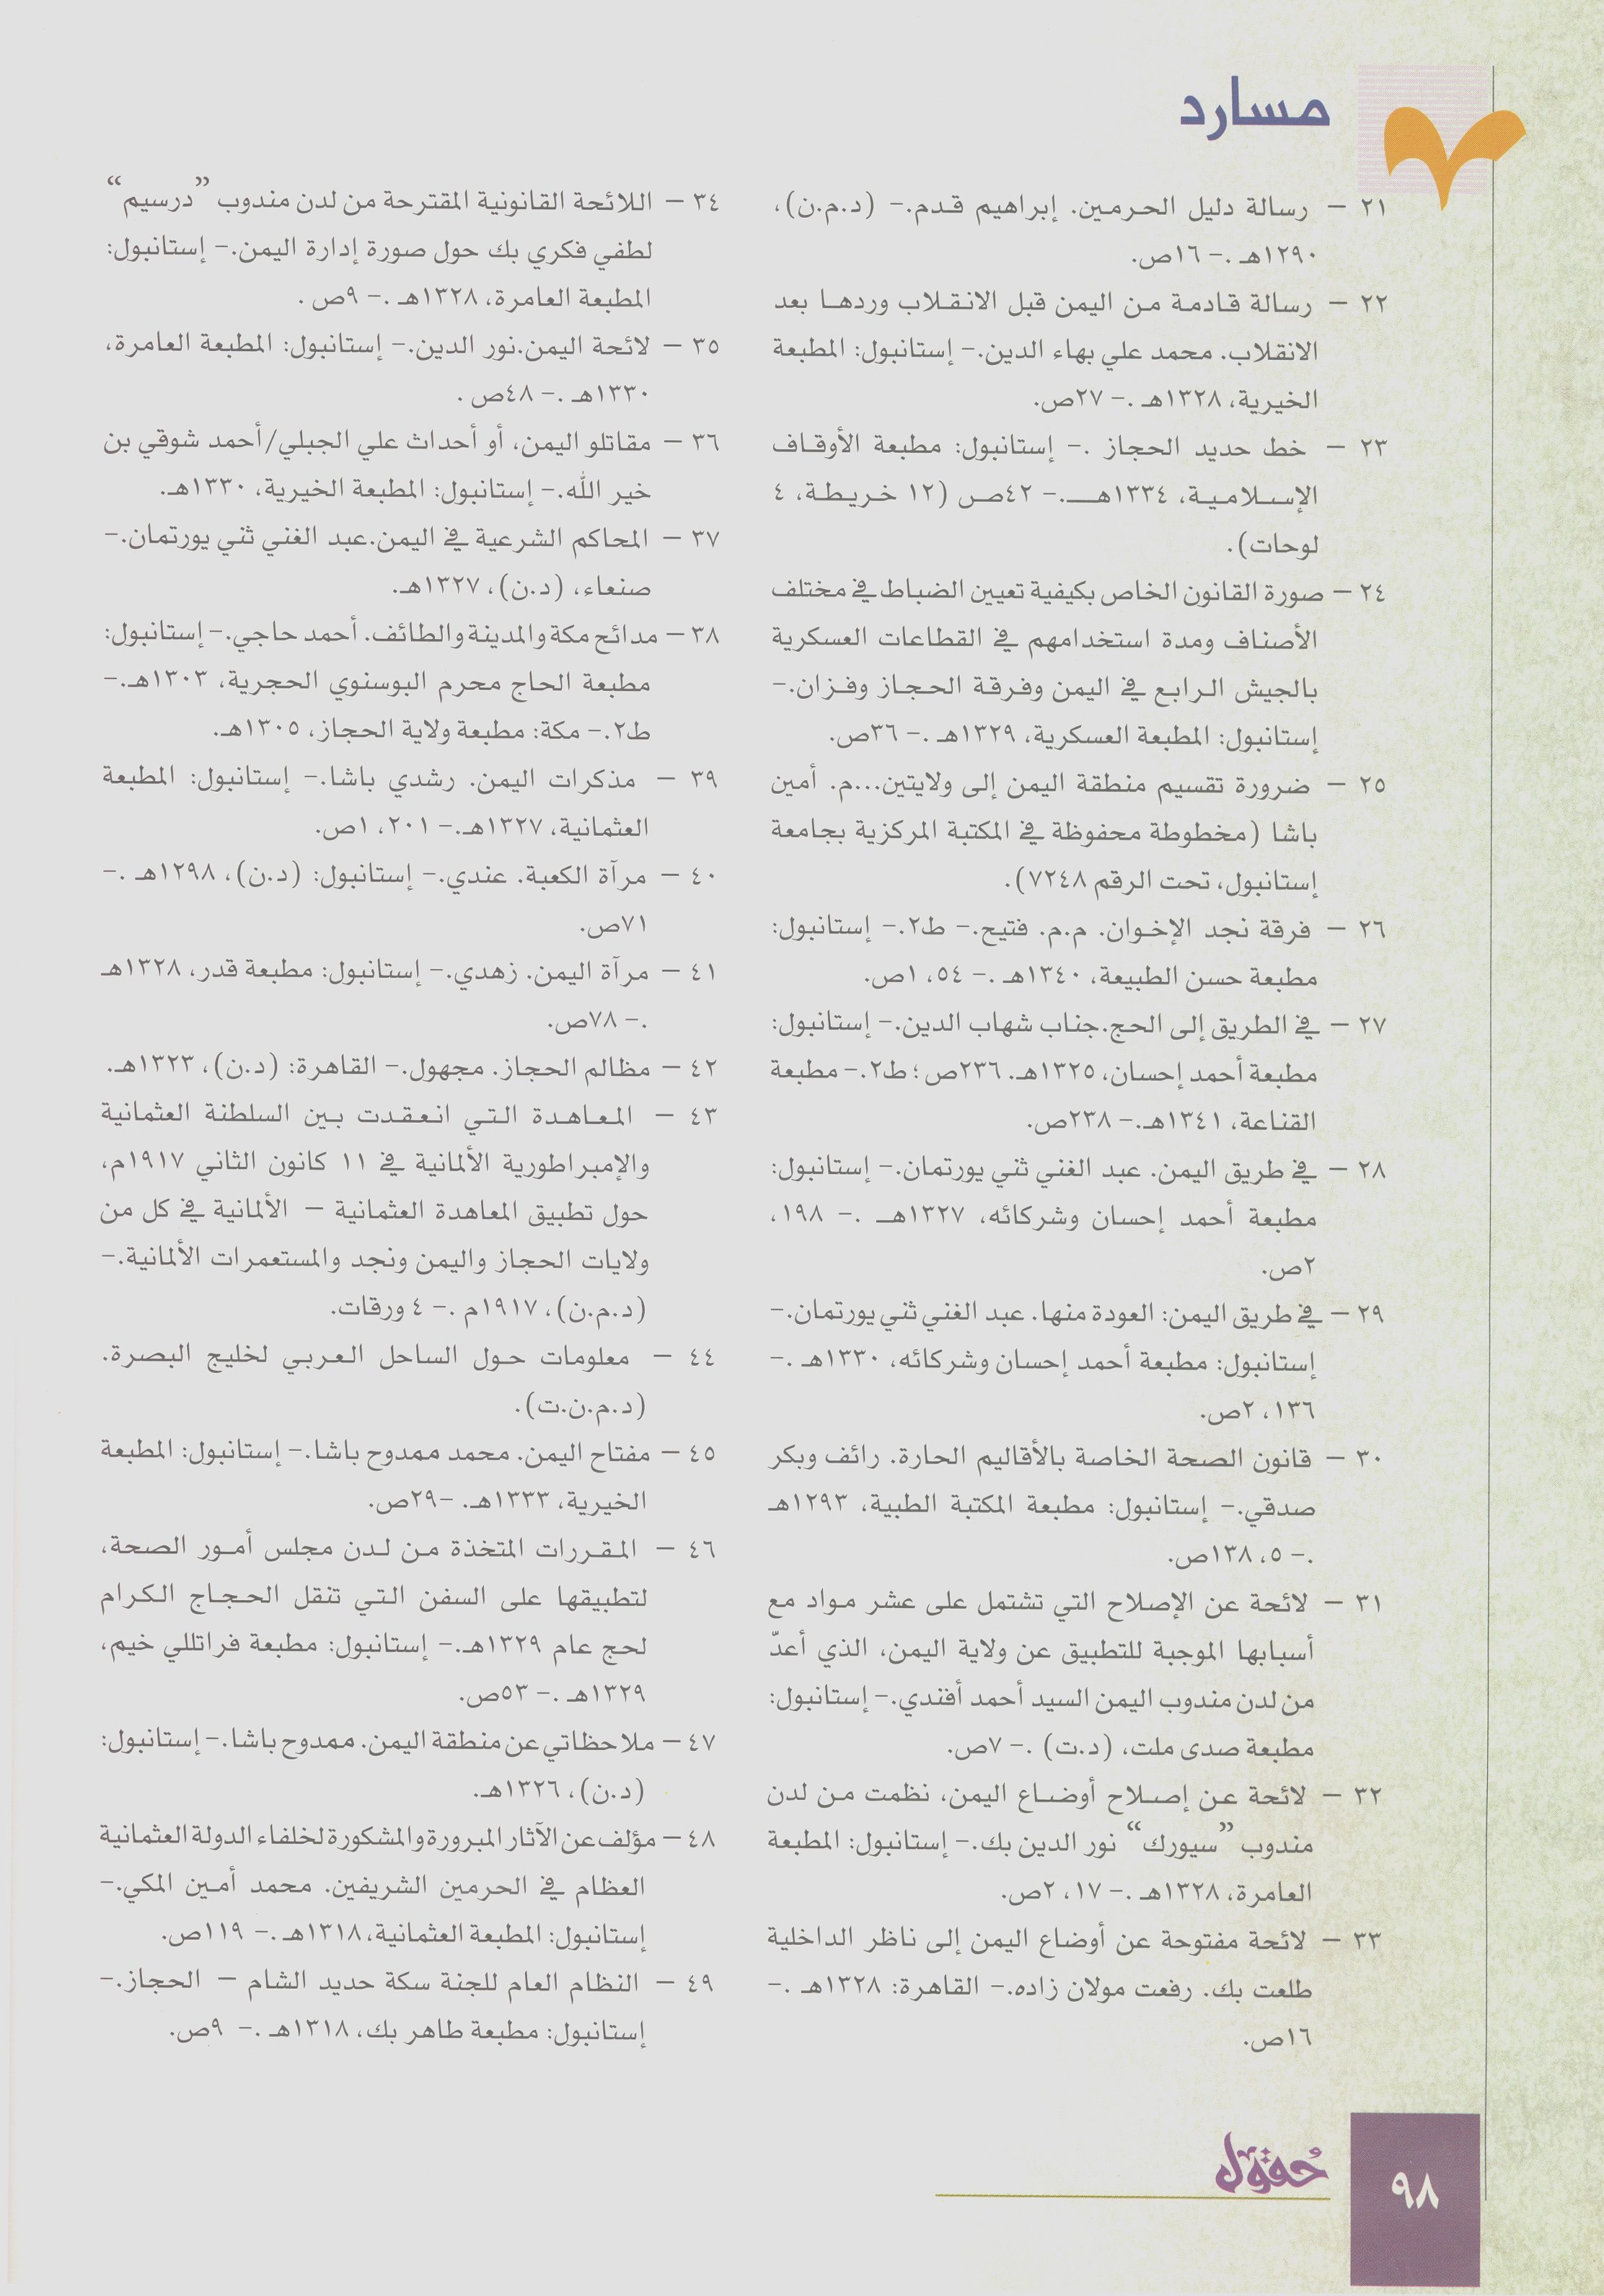 مسارد
٢١ – رسالة دليل الحرمين. إبراهيم قدم.– (د.م.ن)،
١٢٩٠هـ .– ١٦ص.
٢٢ – رسالة قادمة من اليمن قبل الانقلاب وردها بعد
الانقلاب. محمد علي بهاء الدين.– إستانبول: المطبعة
الخيرية، ١٣٢٨هـ .– ٢٧ص.
٢٣ – خط حديد الحجاز .– إستانبول: مطبعة الأوقاف
الإسلامية، ١٣٣٤هـ.– ٤٢ص (١٢ خريطة، ٤
لوحات).
٢٤ – صورة القانون الخاص بكيفية تعيين الضباط في مختلف
الأصناف ومدة استخدامهم في القطاعات العسكرية
بالجيش الرابع في اليمن وفرقة الحجاز وفزان.–
إستانبول: المطبعة العسكرية، ١٣٢٩هـ .– ٣٦ص.
٢٥ – ضرورة تقسيم منطقة اليمن إلى ولايتين...م. أمين
باشا (مخطوطة محفوظة في المكتبة المركزية بجامعة
إستانبول، تحت الرقم ٧٢٤٨).
٢٦ – فرقة نجد الإخوان. م.م. فتيح.– ط٢.– إستانبول:
مطبعة حسن الطبيعة، ١٣٤٠هـ .– ٥٤، ١ص.
٢٧ – في الطريق إلى الحج.جناب شهاب الدين.– إستانبول:
مطبعة أحمد إحسان، ١٣٢٥هـ. ٢٣٦ص؛ ط٢.– مطبعة
القناعة، ١٣٤١هـ.– ٢٣٨ص.
٢٨ – في طريق اليمن. عبد الغني ثني يورتمان.– إستانبول:
مطبعة أحمد إحسان وشركائه، ١٣٢٧هـ .– ١٩٨،
٢ص.
٢٩ – في طريق اليمن: العودة منها. عبد الغني ثني يورتمان.–
إستانبول: مطبعة أحمد إحسان وشركائه، ١٣٣٠هـ .–
١٣٦، ٢ص.
٣٠ – قانون الصحة الخاصة بالأقاليم الحارة. رائف وبكر
صدقي.– إستانبول: مطبعة المكتبة الطبية، ١٢٩٣هـ
.– ٥، ١٣٨ص.
٣١ – لائحة عن الإصلاح التي تشتمل على عشر مواد مع
أسبابها الموجبة للتطبيق عن ولاية اليمن، الذي أعدّ
من لدن مندوب اليمن السيد أحمد أفندي.– إستانبول:
مطبعة صدى ملت، (د.ت) .– ٧ص.
٣٢ – لائحة عن إصلاح أوضاع اليمن، نظمت من لدن
مندوب ”سيورك“ نور الدين بك.– إستانبول: المطبعة
العامرة، ١٣٢٨هـ .– ١٧، ٢ص.
٣٣ – لائحة مفتوحة عن أوضاع اليمن إلى ناظر الداخلية
طلعت بك. رفعت مولان زاده.– القاهرة: ١٣٢٨هـ .–
١٦ص.
٣٤ – اللائحة القانونية المقترحة من لدن مندوب ”درسيم“
لطفي فكري بك حول صورة إدارة اليمن.– إستانبول:
المطبعة العامرة، ١٣٢٨هـ .– ٩ص .
٣٥ – لائحة اليمن.نور الدين.– إستانبول: المطبعة العامرة،
١٣٣٠هـ .– ٤٨ص .
٣٦ – مقاتلو اليمن، أو أحداث علي الجبلي/أحمد شوقي بن
خير الله.– إستانبول: المطبعة الخيرية، ١٣٣٠هـ.
٣٧ – المحاكم الشرعية في اليمن.عبد الغني ثني يورتمان.–
صنعاء، (د.ن)، ١٣٢٧هـ.
٣٨ – مدائح مكة والمدينة والطائف. أحمد حاجي.– إستانبول:
مطبعة الحاج محرم البوسنوي الحجرية، ١٣٠٣هـ.–
ط٢.– مكة: مطبعة ولاية الحجاز، ١٣٠٥هـ.
٣٩ – مذكرات اليمن. رشدي باشا.– إستانبول: المطبعة
العثمانية، ١٣٢٧هـ.– ٢٠١، ١ص.
٤٠ – مرآة الكعبة. عندي.– إستانبول: (د.ن)، ١٢٩٨هـ .–
٧١ص.
٤١ – مرآة اليمن. زهدي.– إستانبول: مطبعة قدر، ١٣٢٨هـ
.– ٧٨ص.
٤٢ – مظالم الحجاز. مجهول.– القاهرة: (د.ن)، ١٣٢٣هـ.
٤٣ – المعاهدة التي انعقدت بين السلطنة العثمانية
والإمبراطورية الألمانية في ١١ كانون الثاني ١٩١٧م،
حول تطبيق المعاهدة العثمانية – الألمانية في كل من
ولايات الحجاز واليمن ونجد والمستعمرات الألمانية.–
(د.م.ن)، ١٩١٧م .– ٤ ورقات.
٤٤ – معلومات حول الساحل العربي لخليج البصرة.
(د.م.ن.ت).
٤٥ – مفتاح اليمن. محمد ممدوح باشا.– إستانبول: المطبعة
الخيرية، ١٣٣٣هـ. –٢٩ص.
٤٦ – المقررات المتخذة من لدن مجلس أمور الصحة،
لتطبيقها على السفن التي تنقل الحجاج الكرام
لحج عام ١٣٢٩هـ.– إستانبول: مطبعة فراتللي خيم،
١٣٢٩هـ .– ٥٣ص.
٤٧ – ملاحظاتي عن منطقة اليمن. ممدوح باشا.– إستانبول:
(د.ن)، ١٣٢٦هـ.
٤٨ – مؤلف عن الآثار المبرورة والمشكورة لخلفاء الدولة العثمانية
العظام في الحرمين الشريفين. محمد أمين المكي.–
إستانبول: المطبعة العثمانية، ١٣١٨هـ .– ١١٩ص.
٤٩ – النظام العام للجنة سكة حديد الشام – الحجاز.–
إستانبول: مطبعة طاهر بك، ١٣١٨هـ .– ٩ص.
حُقول
٩٨